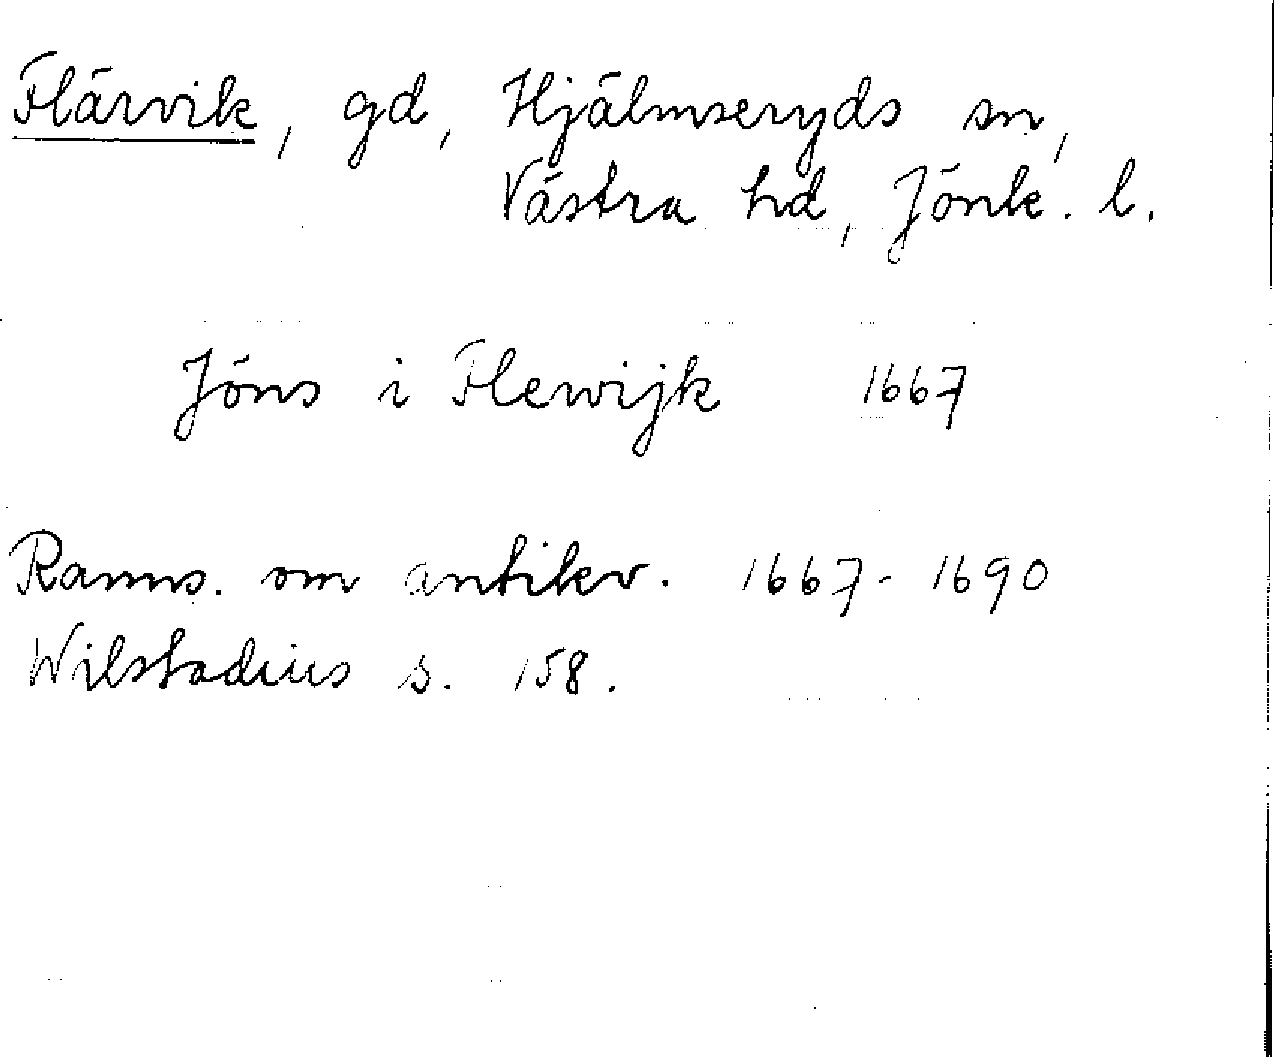 Flärvik, gd, Hjälmseryds sn,
Västra hd, Jönk. l.
Jöns i Flerwijk 1667
Ranns. om antikv. 1667-1690
Wilstadius s. 158.